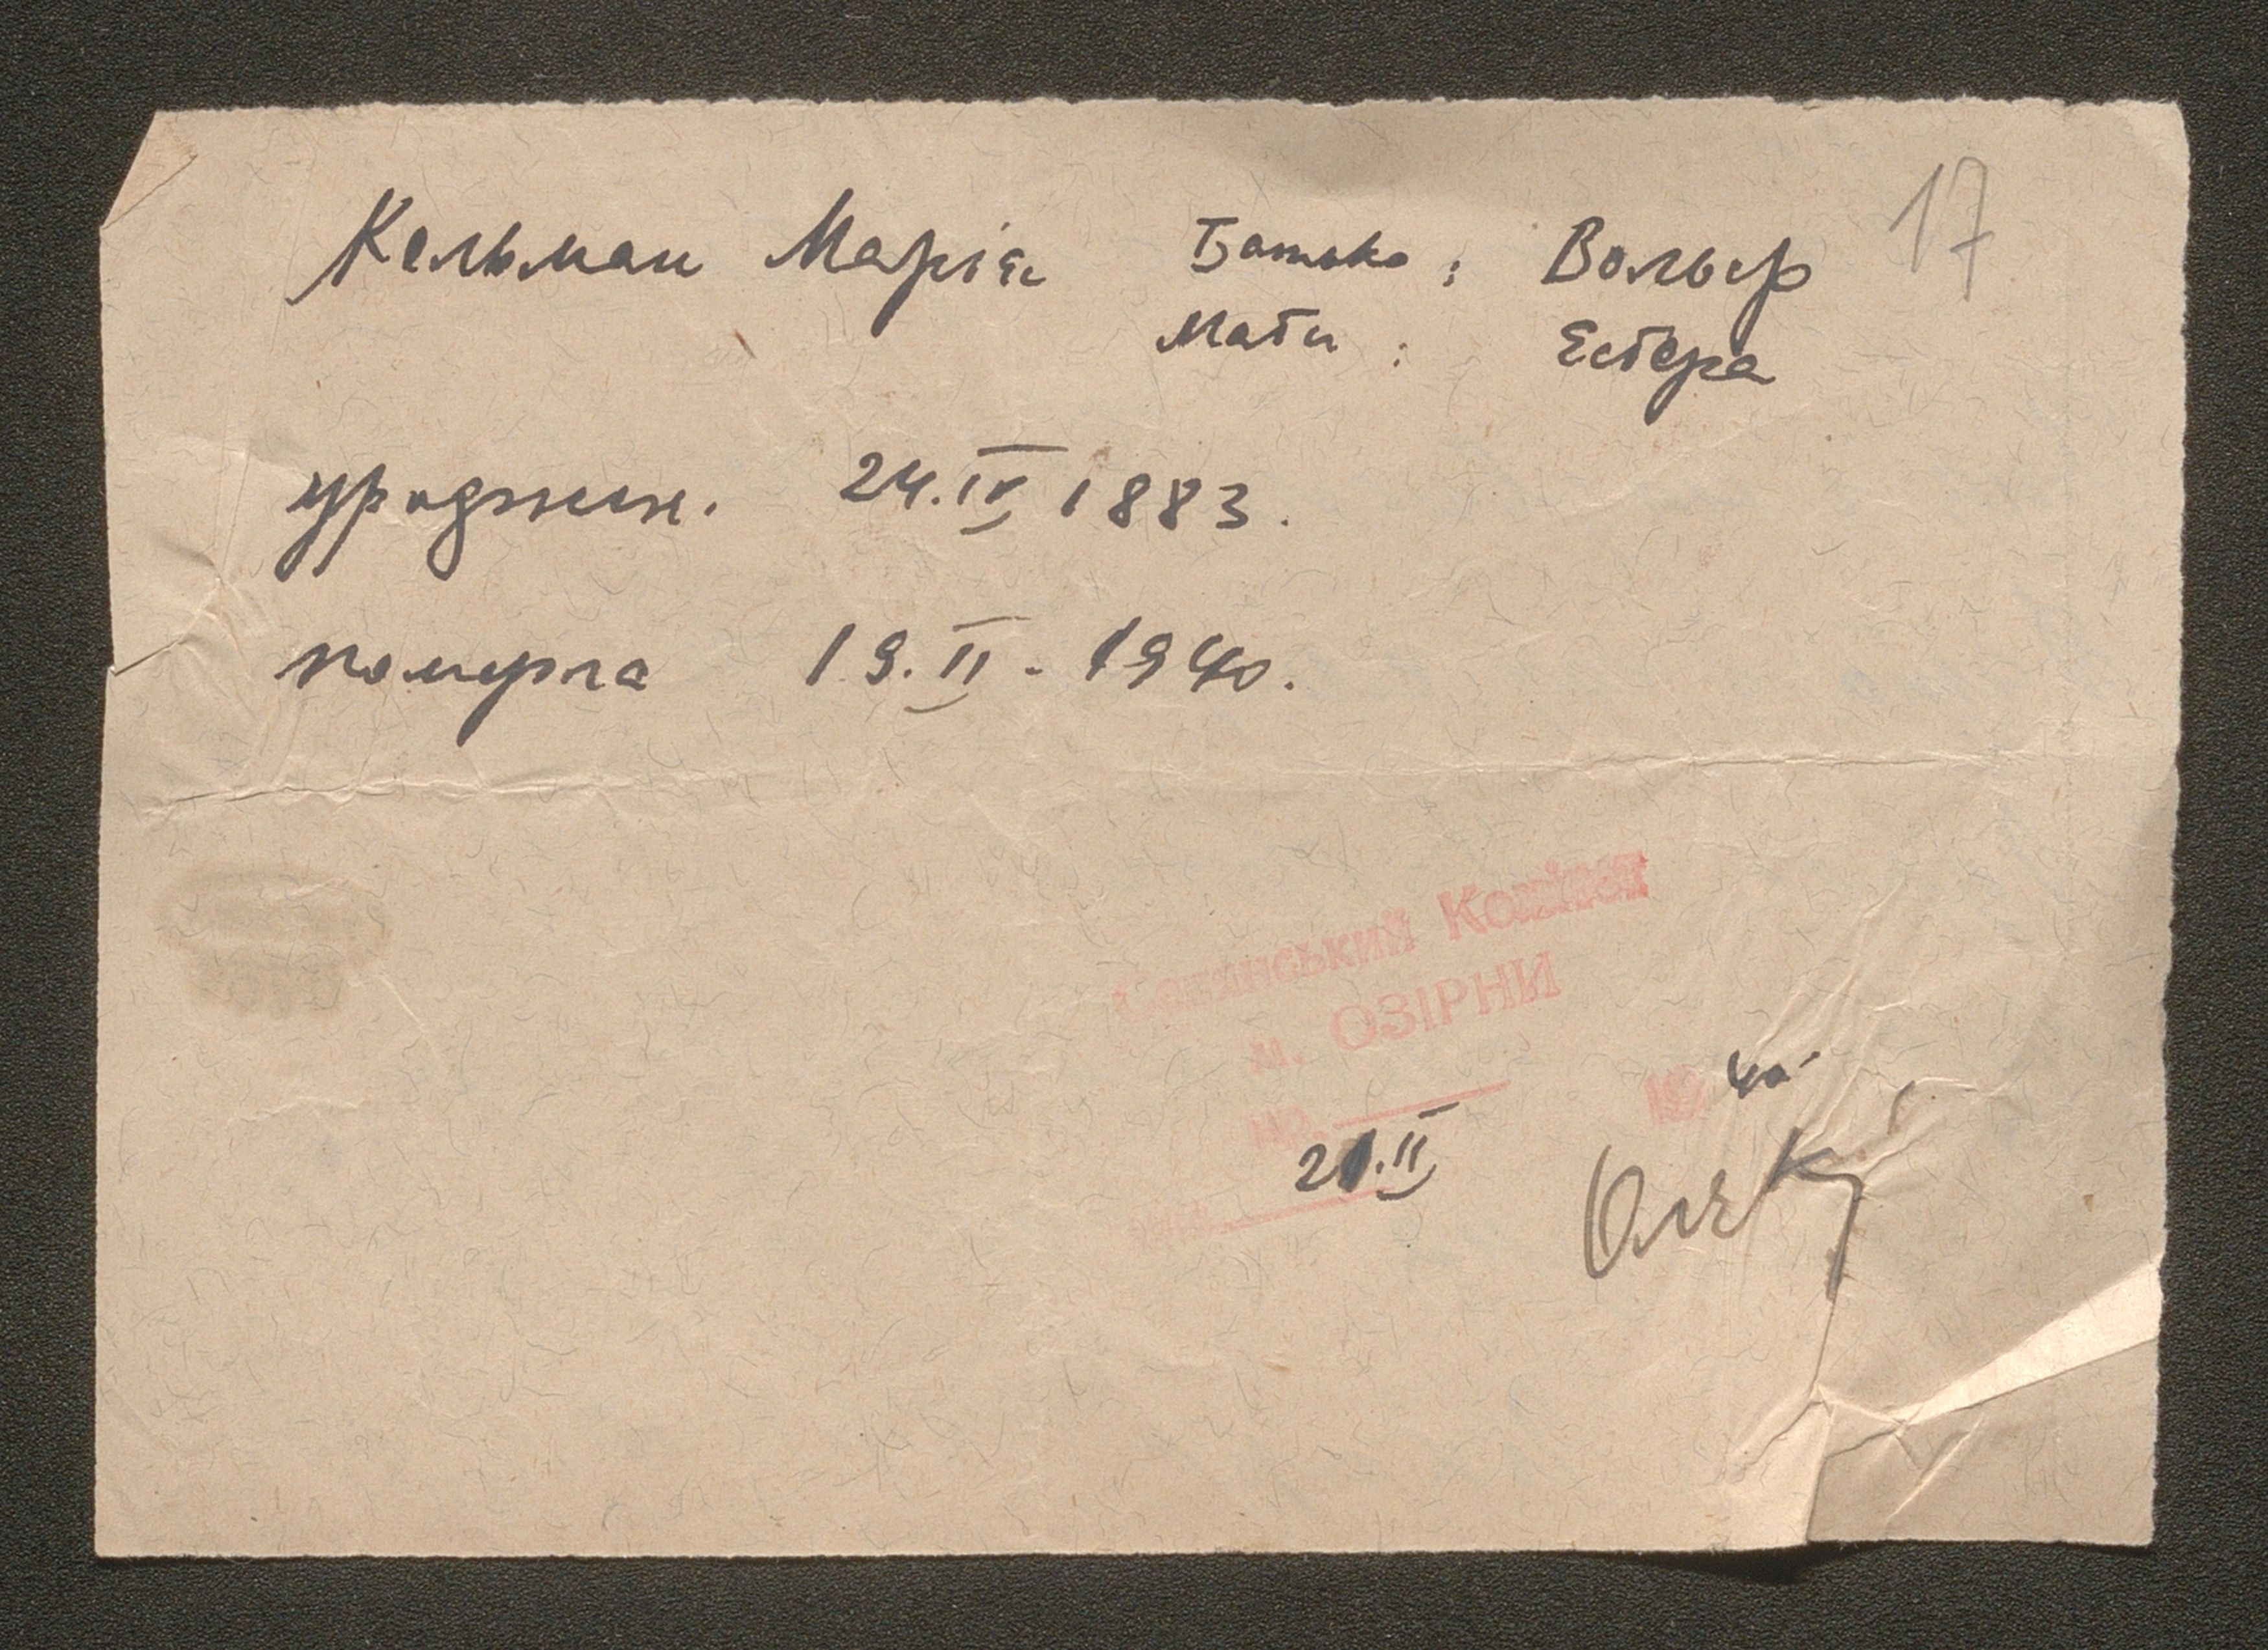 17
Кельман Марія Батько : Вольф
Мати : Естера
уроджен. 24.IV 1883.
померла 19.II - 1940.
Селянський Комітет
м. ОЗІРНИ
нр.
19 40
21.II